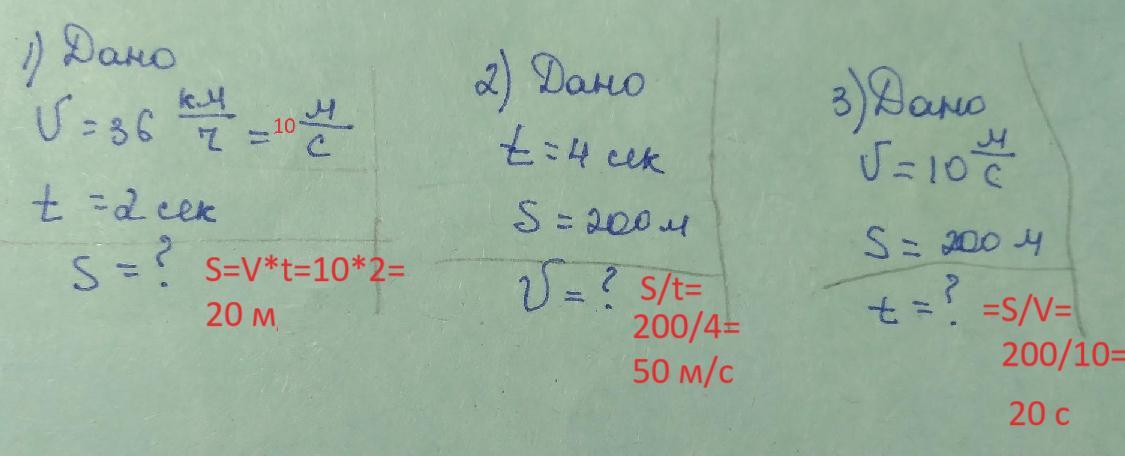 1) Дано
V = 36 км/ч = 10 м/с
t = 2 сек
S = ? S=V*t=10*2=
20 м
2) Дано
t = 4 сек
S = 200 м
V = ? S/t=
200/4=
50 м/с
3) Дано
V = 10 м/с
S = 200 м
t = ? =S/V=
200/10=
20 с